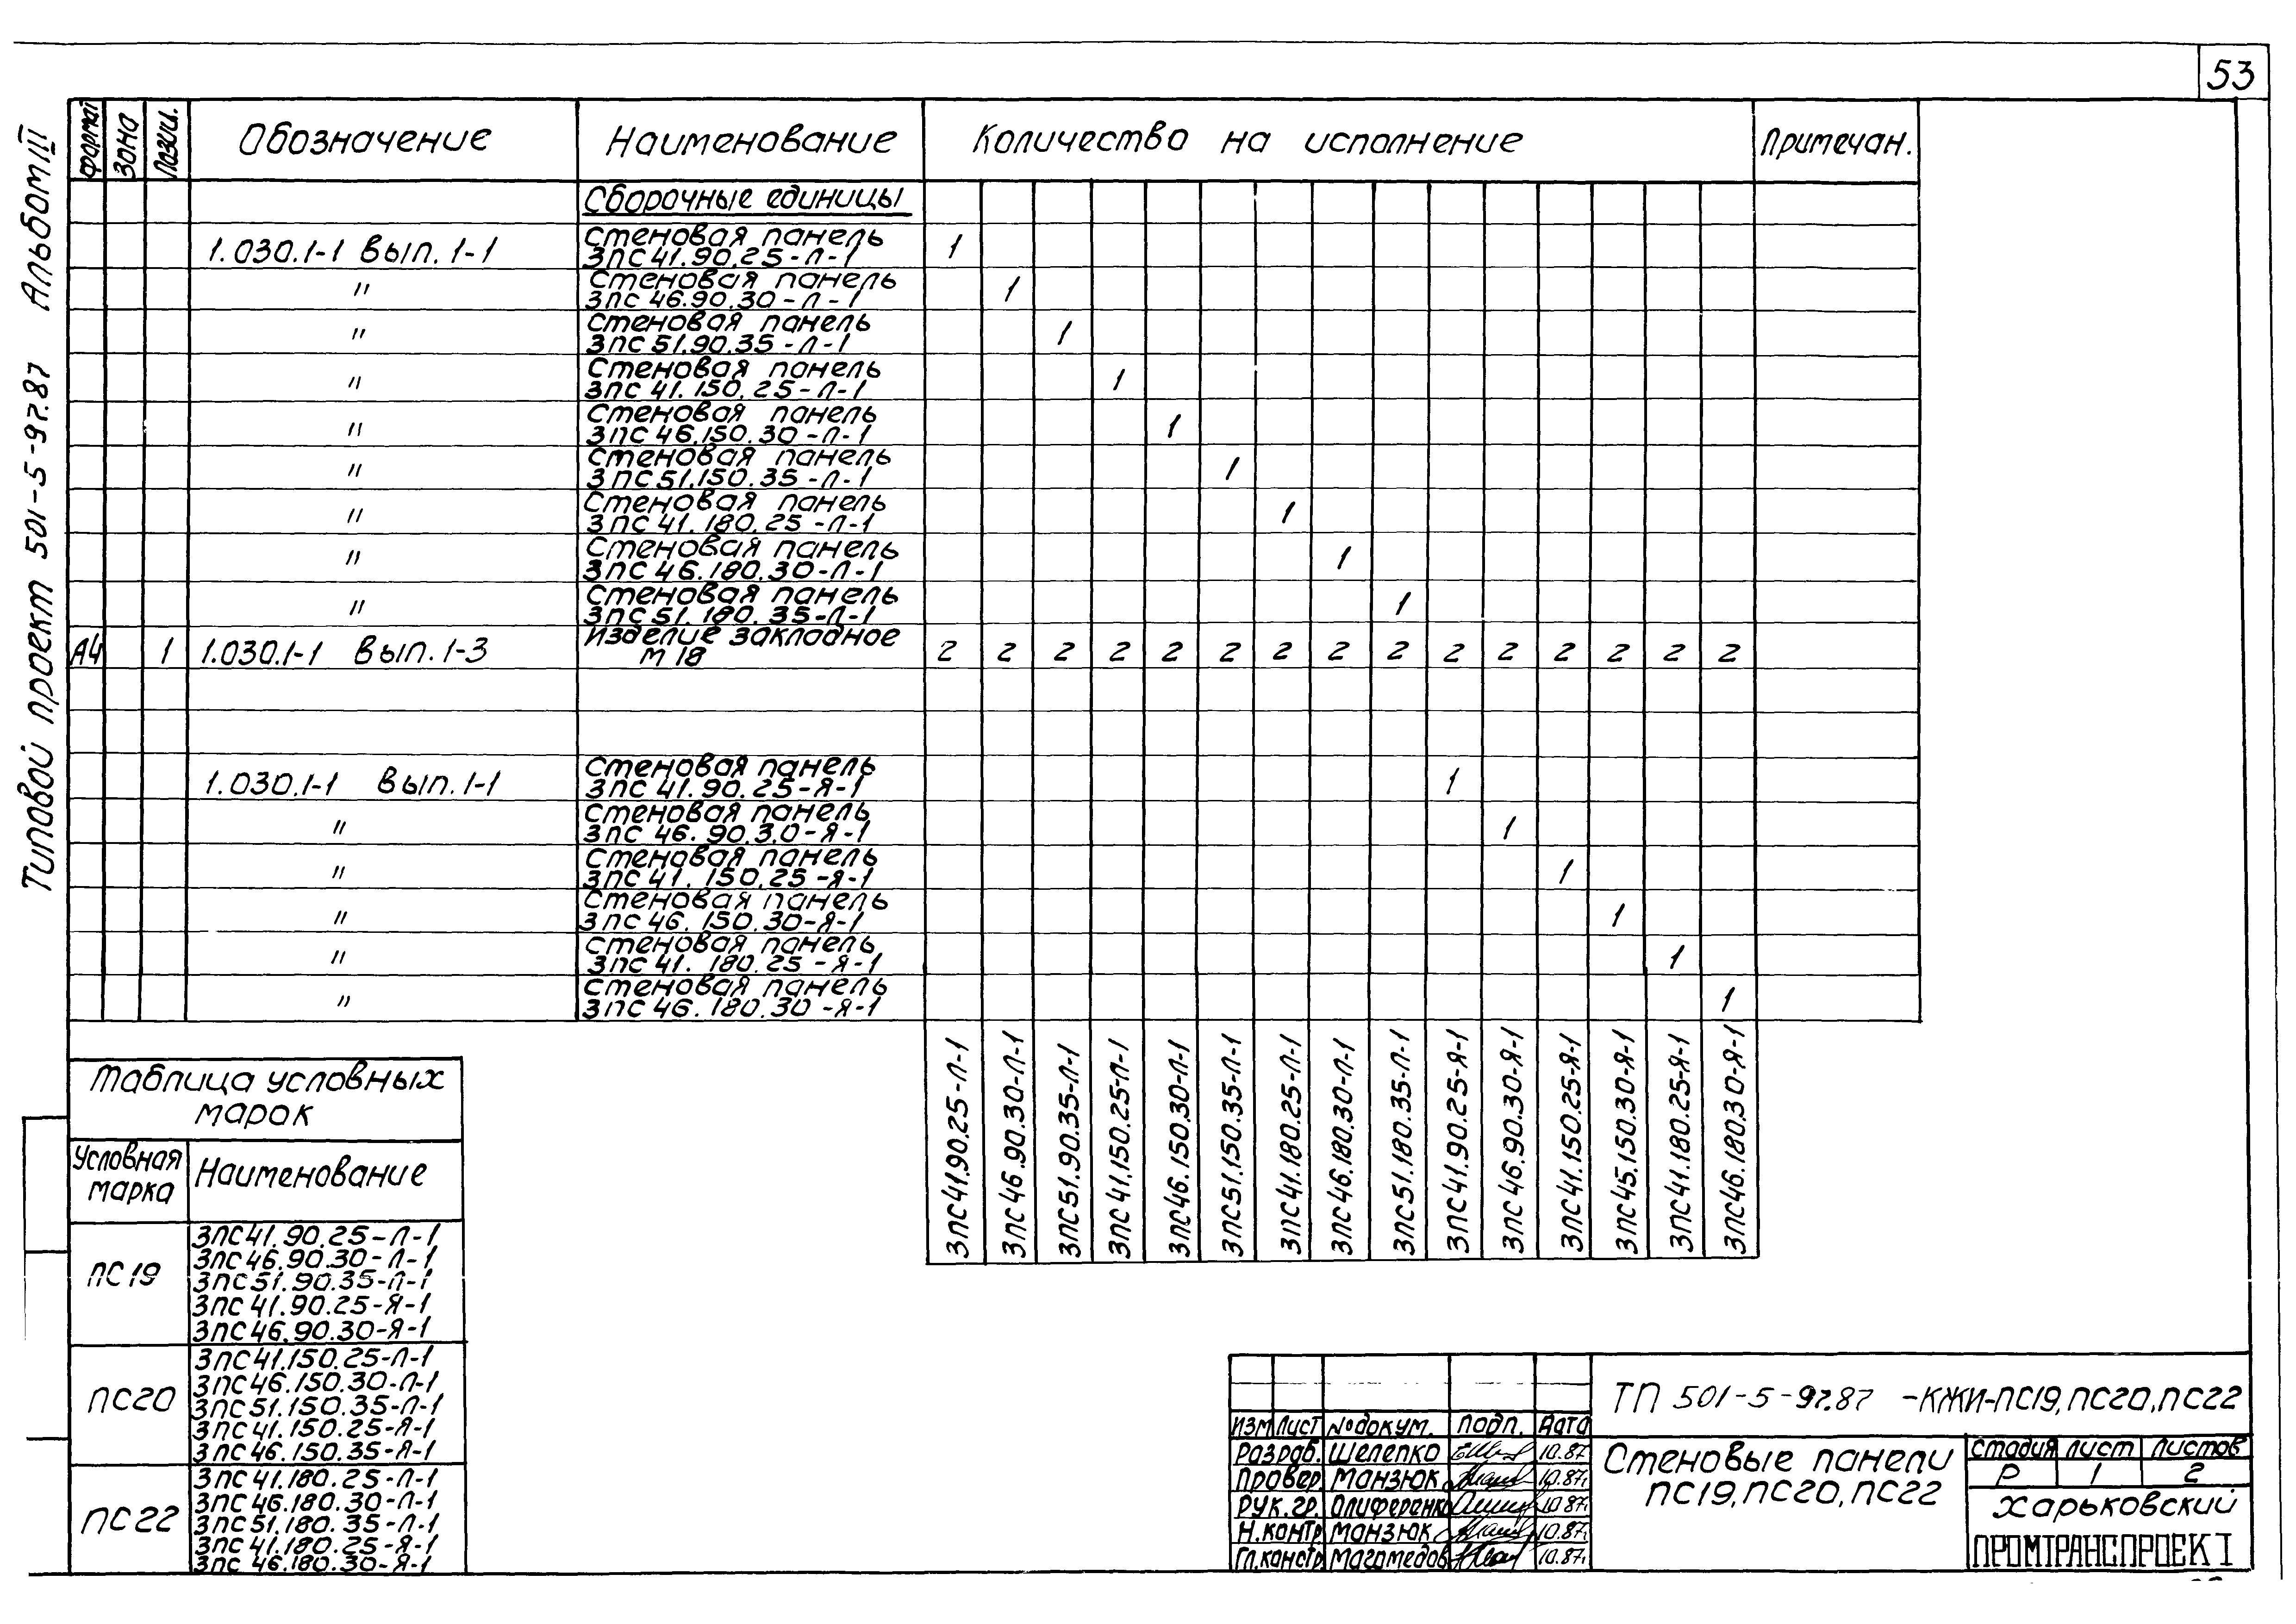 53
Альбом III
Типовой проект 501-5-97.87
Формат Зона Позиц. Обозначение Наименование Количество на исполнение Примечан.
Сборочные единицы
1.030.1-1 Вып. 1-1 Стеновая панель 3ПС41.90.25-Л-1 1
" Стеновая панель 3ПС46.90.30-Л-1 1
" Стеновая панель 3ПС51.90.35-Л-1 1
" Стеновая панель 3ПС41.150.25-Л-1 1
" Стеновая панель 3ПС46.150.30-Л-1 1
" Стеновая панель 3ПС51.150.35-Л-1 1
" Стеновая панель 3ПС41.180.25-Л-1 1
" Стеновая панель 3ПС46.180.30-Л-1 1
" Стеновая панель 3ПС51.180.35-Л-1 1
А4 1 1.030.1-1 Вып. 1-3 Изделие закладное М18 2 2 2 2 2 2 2 2 2 2 2 2 2 2 2
1.030.1-1 Вып. 1-1 Стеновая панель 3ПС41.90.25-Я-1 1
" Стеновая панель 3ПС46.90.30-Я-1 1
" Стеновая панель 3ПС41.150.25-Я-1 1
" Стеновая панель 3ПС46.150.30-Я-1 1
" Стеновая панель 3ПС41.180.25-Я-1 1
" Стеновая панель 3ПС46.180.30-Я-1 1
3ПС41.90.25-Л-1
3ПС46.90.30-Л-1
3ПС51.90.35-Л-1
3ПС41.150.25-Л-1
3ПС46.150.30-Л-1
3ПС51.150.35-Л-1
3ПС41.180.25-Л-1
3ПС46.180.30-Л-1
3ПС51.180.35-Л-1
3ПС41.90.25-Я-1
3ПС46.90.30-Я-1
3ПС41.150.25-Я-1
3ПС45.150.30-Я-1
3ПС41.180.25-Я-1
3ПС46.180.30-Я-1
Таблица условных
марок
Условная марка Наименование
ПС19
3ПС41.90.25-Л-1
3ПС46.90.30-Л-1
3ПС51.90.35-Л-1
3ПС41.90.25-Я-1
3ПС46.90.30-Я-1
ПС20
3ПС41.150.25-Л-1
3ПС46.150.30-Л-1
3ПС51.150.35-Л-1
3ПС41.150.25-Я-1
3ПС46.150.35-Я-1
ПС22
3ПС41.180.25-Л-1
3ПС46.180.30-Л-1
3ПС51.180.35-Л-1
3ПС41.180.25-Я-1
3ПС46.180.30-Я-1
ТП 501-5-97.87 -КЖИ-ПС19, ПС20, ПС22
Изм Лист № докум. Подп. Дата
Разраб. Шелепко 10.87
Провер. Манзюк 10.87г.
Рук. гр. Олиференко 10.87г.
Н.контр. Манзюк 10.87г.
Гл.констр. Магомедов 10.87г.
Стеновые панели
ПС19, ПС20, ПС22
Стадия Лист Листов
Р 1 2
Харьковский
ПРОМТРАНСПРОЕКТ